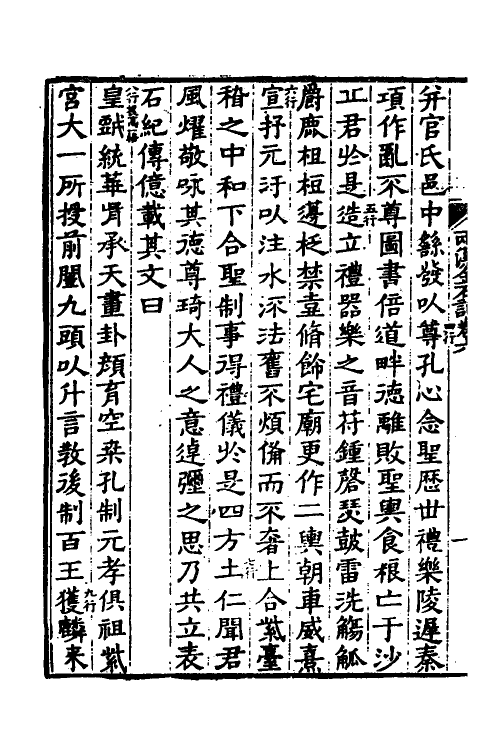 并官氏邑中繇發以尊孔心念聖歷世禮樂陵遲秦
四行
項作亂不尊圖書倍道畔德離敗聖輿食粮亡于沙
五行
丘君於是造立禮器樂之音苻鍾磬瑟鼓雷洗觴觚
爵鹿柤桓籩柉禁壺脩飾宅廟更作二輿朝車威熹
六行
宣抒元汙以注水流法舊不煩備而不奢上合紫臺
七行
稽之中和下合聖制事得禮儀於是四方士仁聞君
風燿敬咏其德尊琦大人之意逴彌之思乃共立表
石紀傳億載其文曰
八行
皇戲統華胥承天畫卦顏育空桒孔制元孝俱祖紫
宮大一所授前闓九頭以什言教後制百王獲麟来
九行
兩漢金石記卷